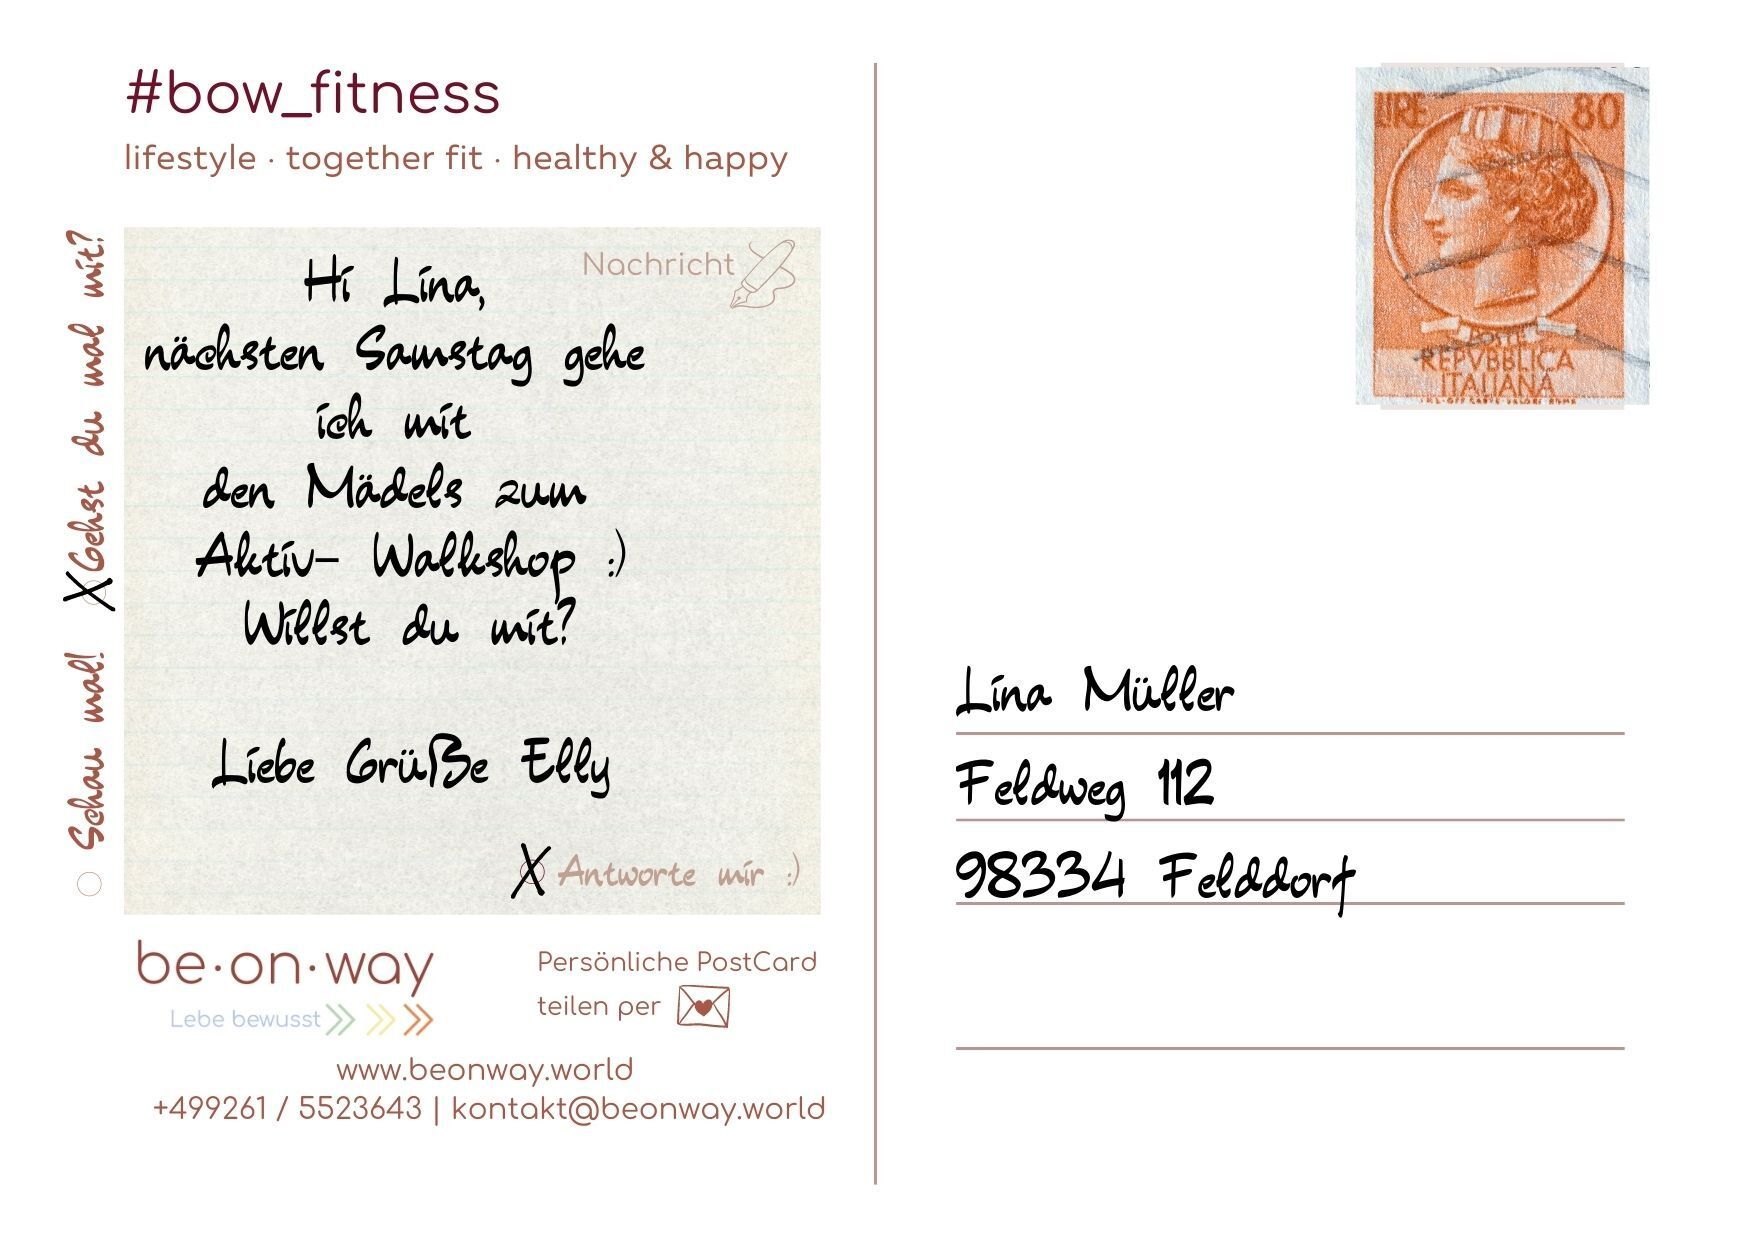 #bow_fitness
lifestyle · together fit · healthy & happy
Nachricht
Hi Lina,
nächsten Samstag gehe
ich mit
den Mädels zum
Aktiv- Walkshop :)
Willst du mit?
Liebe Grüße Elly
X Antworte mir :)
Schau mal!
X Gehst du mal mit?
be·on·way
Lebe bewusst
Persönliche PostCard
teilen per
www.beonway.world
+499261 / 5523643 | kontakt@beonway.world
LIRE 80
POSTE
REPVBBLICA
ITALIANA
Lina Müller
Feldweg 112
98334 Felddorf